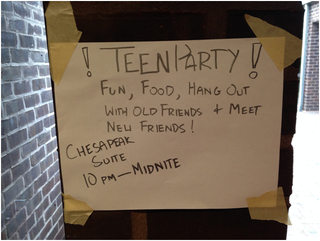 ! TEEN PARTY !
FUN, FOOD, HANG OUT
WITH OLD FRIENDS + MEET
NEW FRIENDS!
CHESAPEAK
SUITE
10 PM — MIDNITE